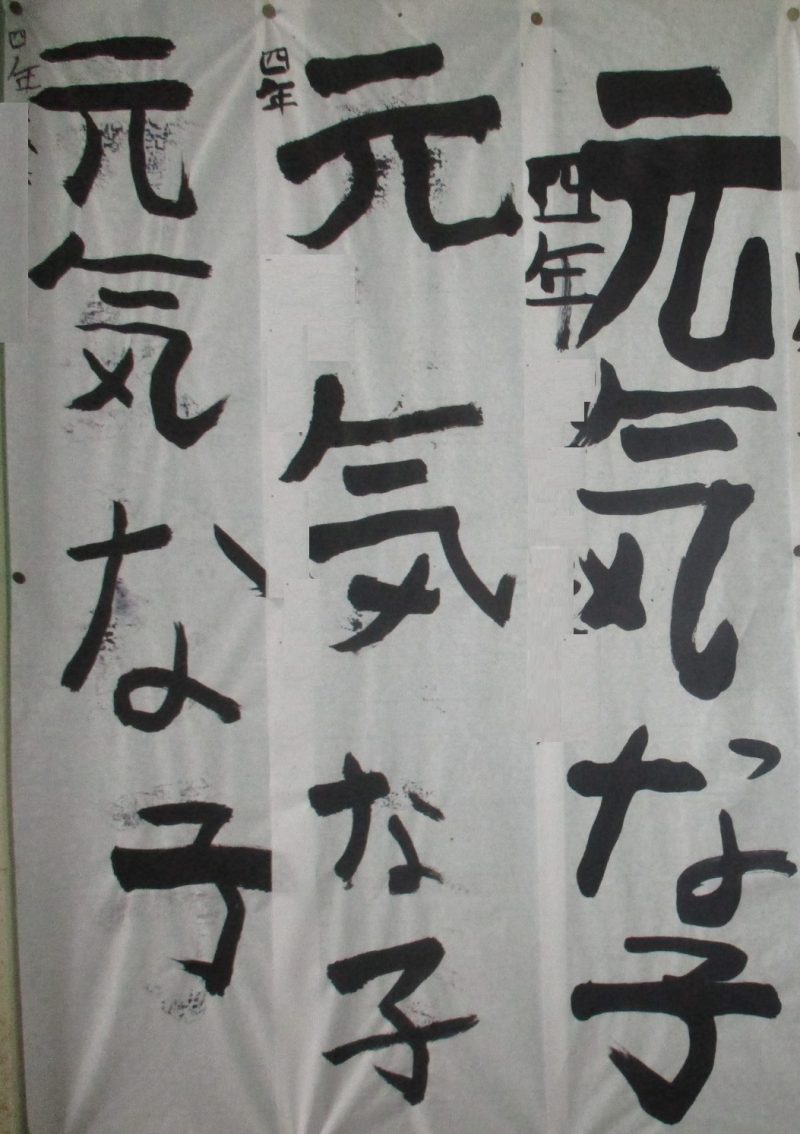 元気な子
四年
元気な子
四年
元気な子
四年